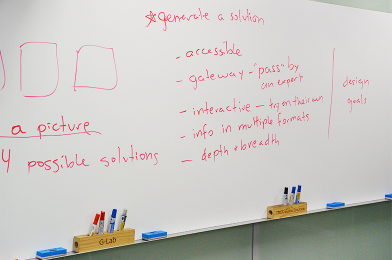 *generate a solution
- accessible
- gateway - "pass" by
an expert
- interactive - try on their own
- info in multiple formats
- depth + breadth
design
goals
a picture
4 possible solutions
G-Lab